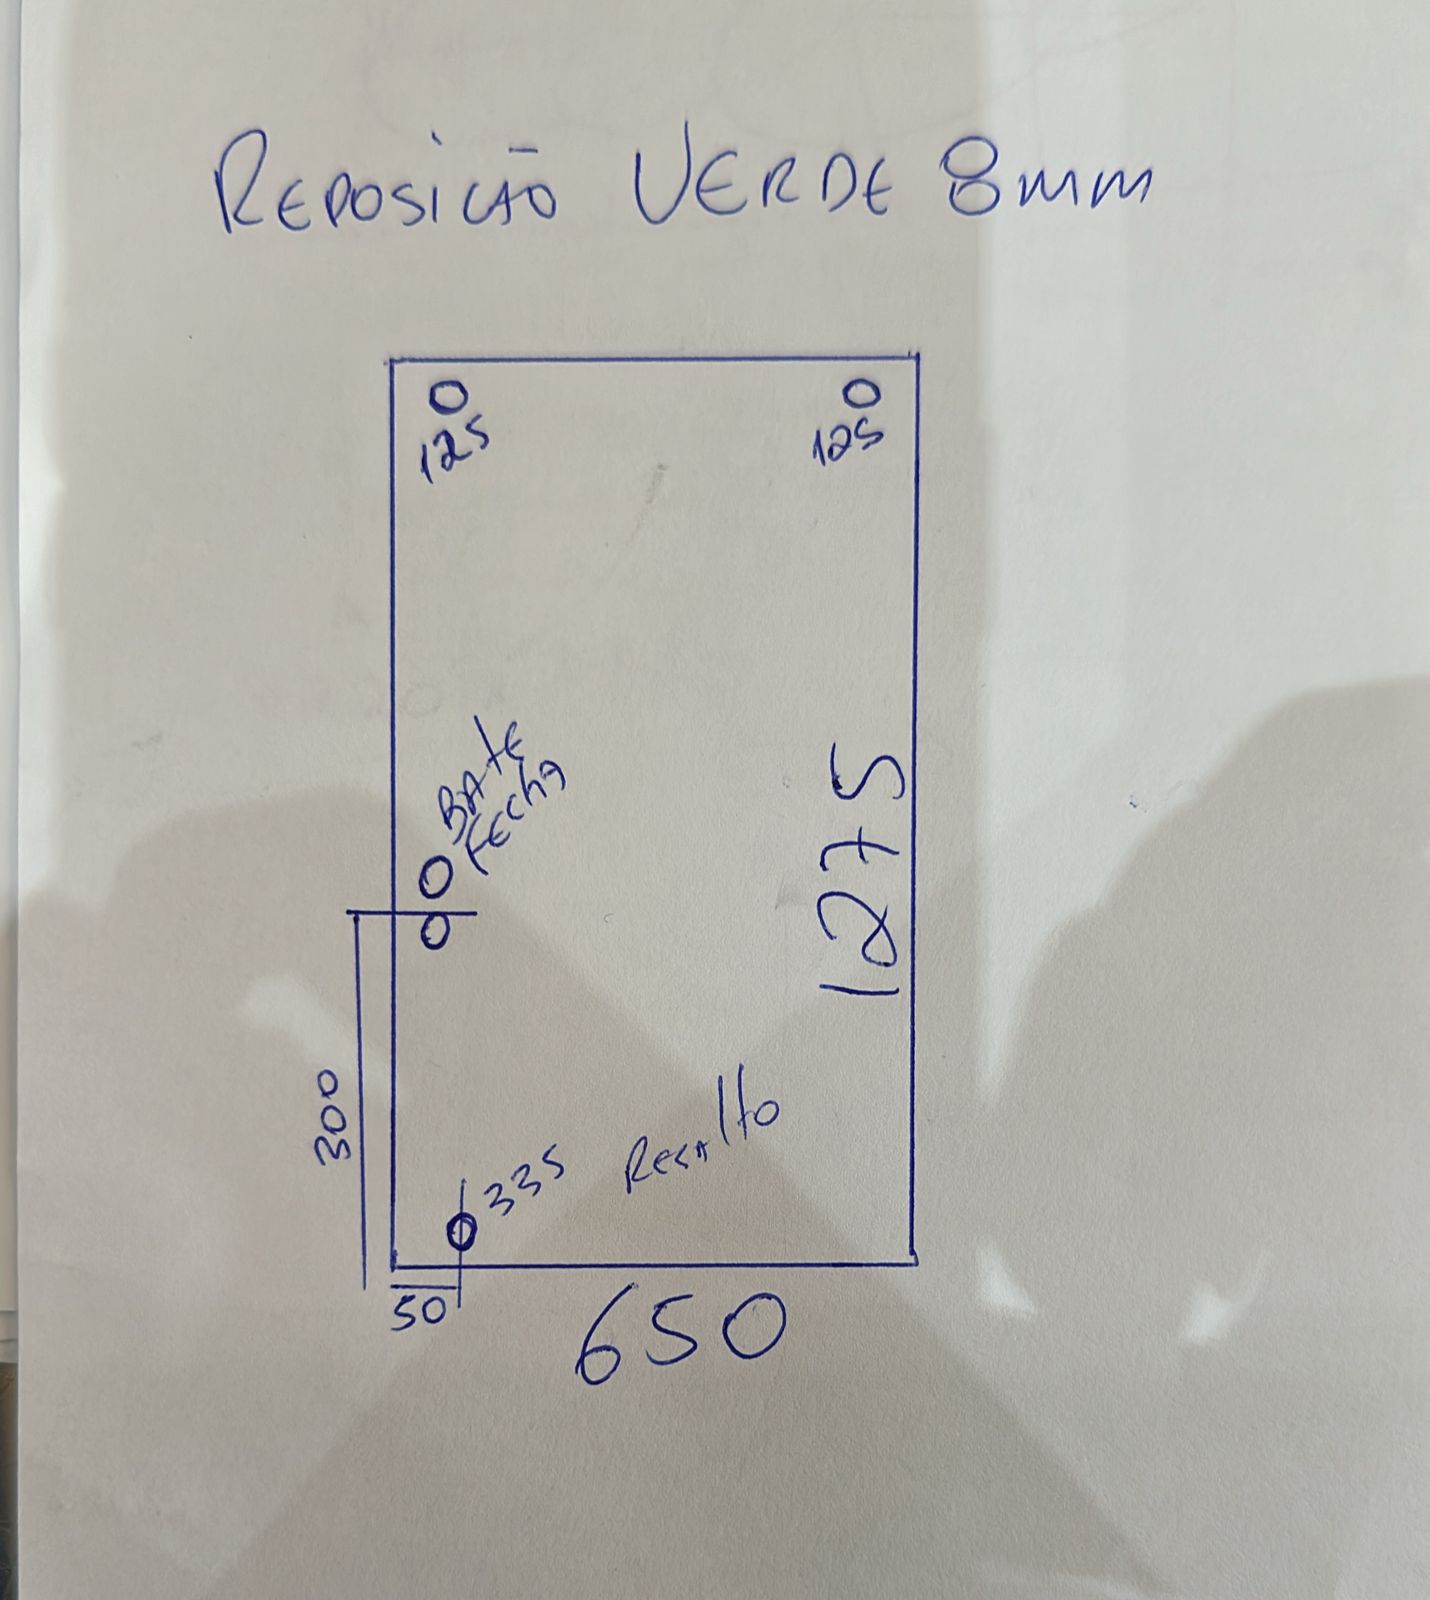 REPOSICÃO VERDE 8mm
125
125
BATE
FECHA
1275
300
335 RESALTO
50
650